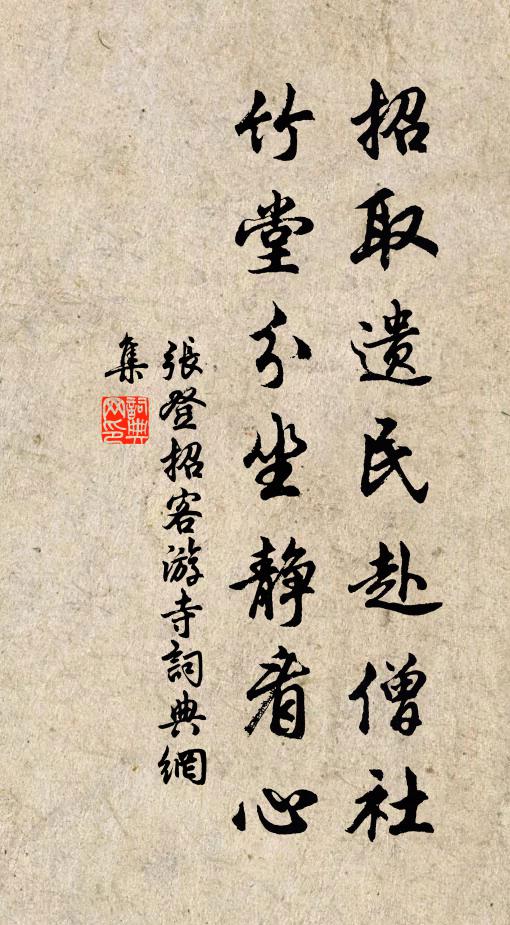 招取遗民赴僧社
竹堂分坐静看心
張登招客游寺詞典網
集
詞典
网印